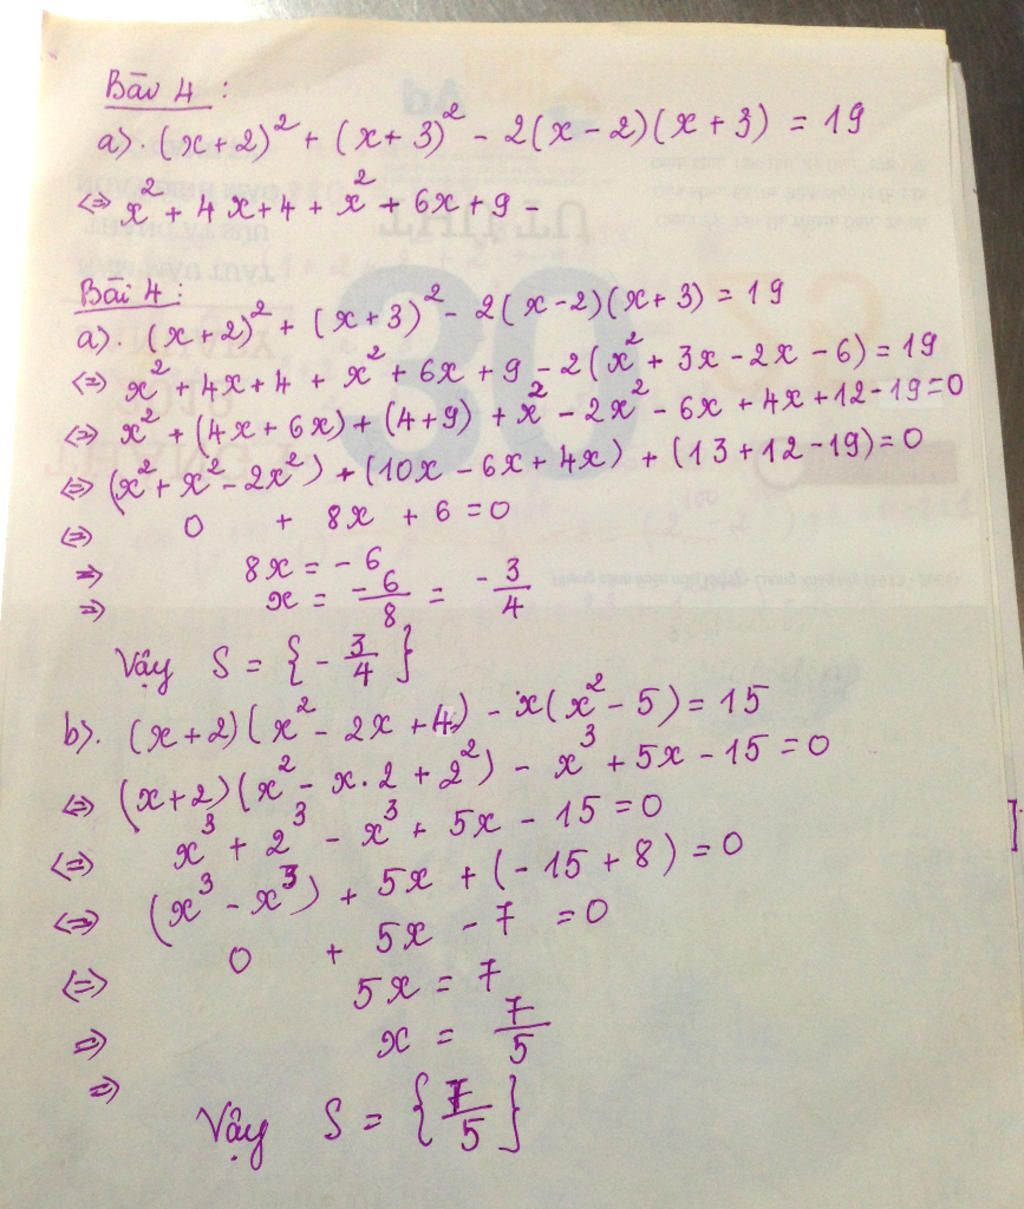 Bài 4 :
a). (x+2)² + (x+3)² - 2(x-2)(x+3) = 19
⇔ x² + 4x+4 + x² + 6x+9 -
Bài 4 :
a). (x+2)² + (x+3)² - 2(x-2)(x+3) = 19
⇔ x² + 4x+4 + x² + 6x+9 - 2(x² + 3x - 2x - 6) = 19
⇔ x² + (4x+6x) + (4+9) + x² - 2x² - 6x + 4x+12-19=0
⇔ (x²+x²-2x²) + (10x - 6x + 4x) + (13+12-19)=0
⇔ 0 + 8x + 6 = 0
⇒ 8x = -6
⇒ x = -6/8 = -3/4
Vậy S = {-3/4}
b). (x+2)(x² - 2x +4) - x(x² - 5) = 15
⇔ (x+2)(x² - x.2 + 2²) - x³ + 5x - 15 = 0
⇔ x³ + 2³ - x³ + 5x - 15 = 0
⇔ (x³ - x³) + 5x + (-15 + 8) = 0
⇔ 0 + 5x - 7 = 0
⇒ 5x = 7
⇒ x = 7/5
Vậy S = {7/5}